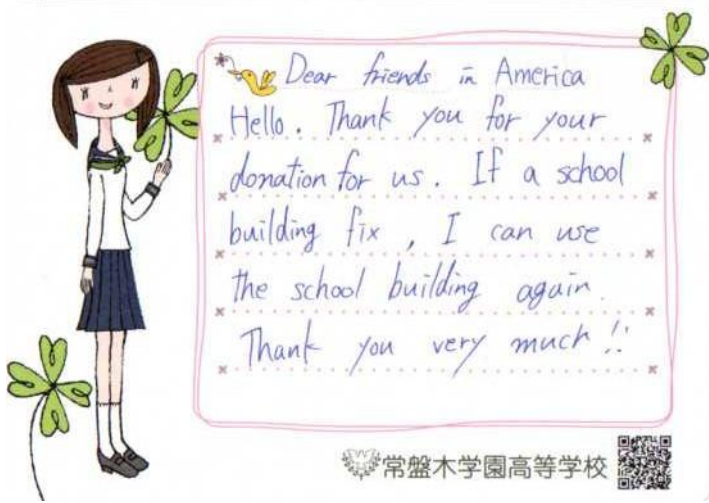 Dear friends in America
Hello. Thank you for your
donation for us. If a school
building fix, I can use
the school building again.
Thank you very much!!
常盤木学園高等学校